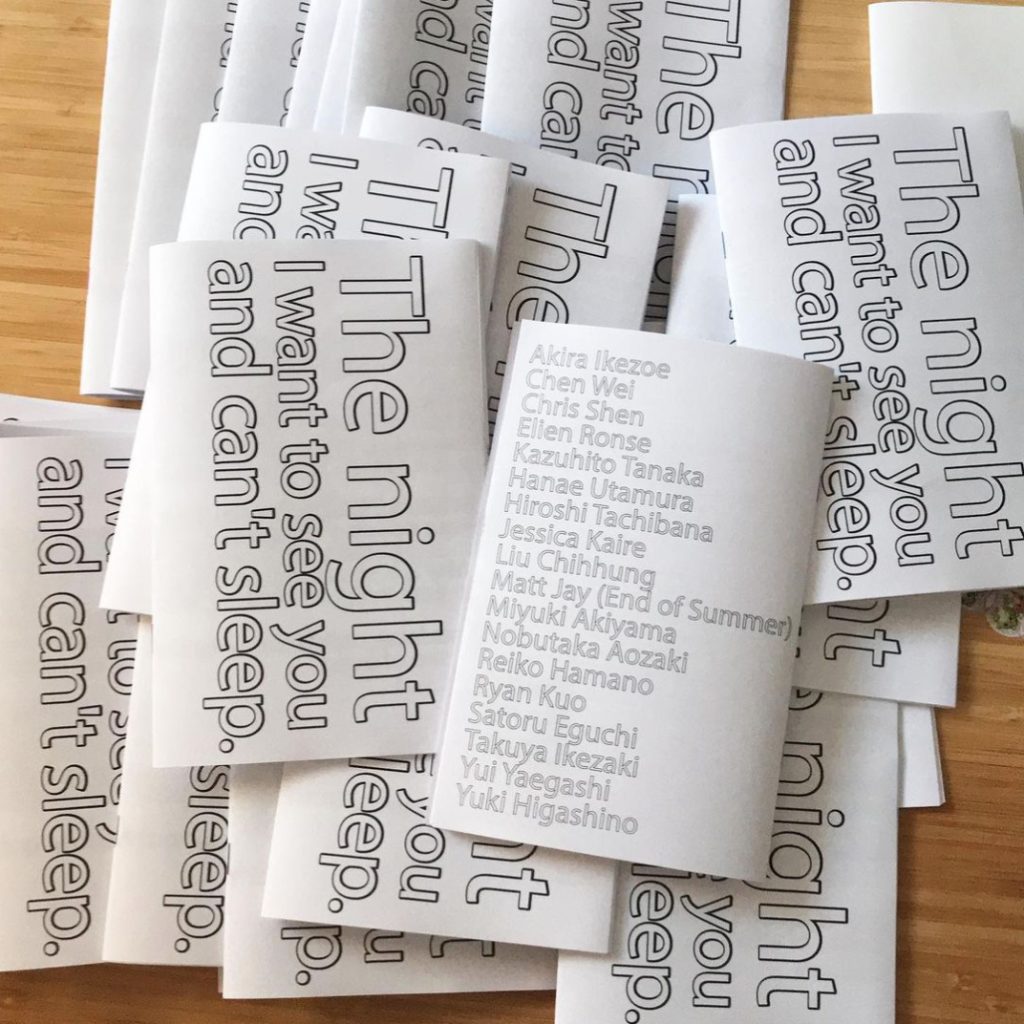 The night
I want to see you
and can't sleep.
The night
I want to see you
and can't sleep.
Akira Ikezoe
Chen Wei
Chris Shen
Elien Ronse
Kazuhito Tanaka
Hanae Utamura
Hiroshi Tachibana
Jessica Kaire
Liu Chihhung
Matt Jay (End of Summer)
Miyuki Akiyama
Nobutaka Aozaki
Reiko Hamano
Ryan Kuo
Satoru Eguchi
Takuya Ikezaki
Yui Yaegashi
Yuki Higashino
The
I want to
and
The
I want to see
and can't sleep.
sleep.
you
sleep.
night
you
sleep.